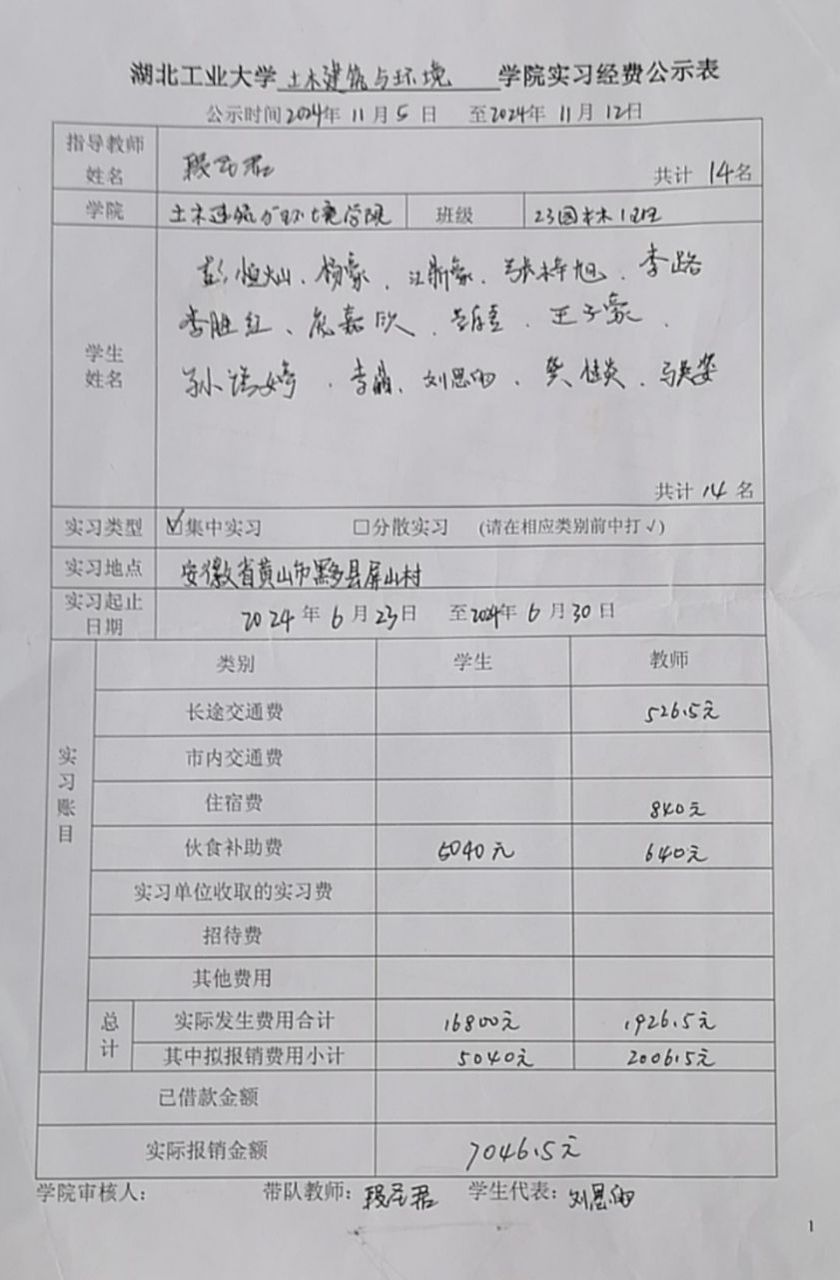 湖北工业大学土木建筑与环境学院实习经费公示表
公示时间2024年 11月 5 日 至2024年 11月 12日
指导教师姓名 段 君 共计 14名
学院 土木建筑与环境学院 班级 23园林1班
学生姓名
彭恒灿、杨豪、江新豪、张梓旭、李路
李胜红、 嘉欣、 、王子豪、
孙 婷、李 、刘思雨、樊 、马
共计 14 名
实习类型 ☑集中实习 □分散实习 (请在相应类别前中打√)
实习地点 安徽省黄山市黟县屏山村
实习起止日期 2024年 6月 23日 至2024年 6月 30日
实习账目 类别 学生 教师
长途交通费 526.5元
市内交通费
住宿费 840元
伙食补助费 5040元 640元
实习单位收取的实习费
招待费
其他费用
总计 实际发生费用合计 16800元 1926.5元
其中拟报销费用小计 5040元 2006.5元
已借款金额
实际报销金额 7046.5元
学院审核人： 带队教师：段 君 学生代表：刘思雨
1